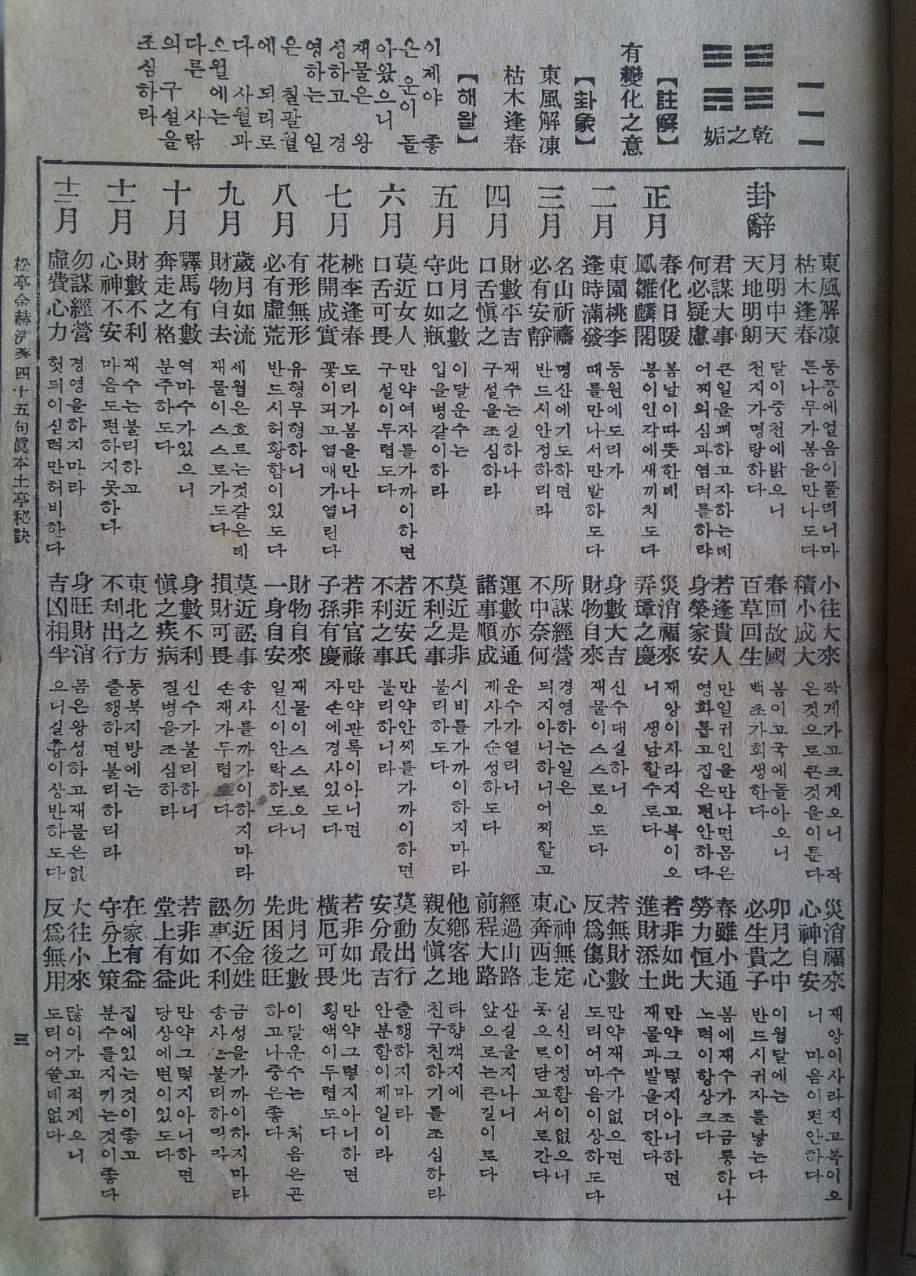 一一一
乾之姤
【註解】
有變化之意
【卦象】
東風解凍
枯木逢春
【해왈】
이제야 좋
은 운이 돌
아왔으니
재물은 왕
성하고 경
영하는 일
은 칠팔월
에 되리로
다 사월과
으월에는
다른 사람
의 구설을
조심하라
卦辭
東風解凍
枯木逢春
동풍에얼음이풀리니마
른나무가봄을만나도다
小往大來
積小成大
작게가고크게오니 작
은것으로큰것을이룬다
災消福來
心神自安
재앙이사라지고복이오
니 마음이편안하다
月明中天
天地明朗
달이중천에밝으니
천지가명랑하다
春回故國
百草回生
봄이고국에돌아오니
백초가회생한다
卯月之中
必生貴子
이월달에는
반드시귀자를낳는다
君謀大事
何必疑慮
큰일을꾀하고자하는데
어찌의심과염려를하랴
若逢貴人
身榮家安
만일귀인을만나면몸은
영화롭고집은편안하다
春雖小通
勞力恒大
봄에재수가조금통하나
노력이항상크다
正月
春化日暖
鳳雛麟閣
봄날이따뜻한데
봉이인각에새끼치도다
災消福來
弄璋之慶
재앙이사라지고복이오
니 생남할수로다
若非如此
進財添土
만약그렇지아니하면
재물과밭을더한다
二月
東園桃李
逢時滿發
동원에도리가
때를만나서만발하도다
身數大吉
財物自來
신수대길하니
재물이스스로오도다
若無財數
反爲傷心
만약재수가없으면
도리어마음이상하도다
三月
名山祈禱
必有安靜
명산에기도하면
반드시안정하리라
所謀經營
不中奈何
경영하는일은
되지아니하니어찌할고
心神無定
東奔西走
심신이정함이없으니
동으로닫고서로간다
四月
財數平吉
口舌愼之
재수는길하나
구설을조심하라
運數亦通
諸事順成
운수가열리니
제사가순성하도다
經過山路
前程大路
산길을지나니
앞으로는큰길이로다
五月
此月之數
守口如瓶
이달운수는
입을병같이하라
莫近是非
不利之事
시비를가까이하지마라
불리하도다
他鄕客地
親友愼之
타향객지에
친구친하기를조심하라
六月
莫近女人
口舌可畏
만약여자를가까이하면
구설이두렵도다
若近安氏
不利之事
만약안씨를가까이하면
불리하니라
莫動出行
安分最吉
출행하지마라
안분함이제일이라
七月
桃李逢春
花開成實
도리가봄을만나니
꽃이피고열매가열린다
若非官祿
子孫有慶
만약관록이아니면
자손에경사있도다
若非如此
橫厄可畏
만약그렇지아니하면
횡액이두렵도다
八月
有形無形
必有虛荒
유형무형하니
반드시허황함이있도다
財物自來
一身自安
재물이스스로오니
일신이안락하도다
此月之數
先困後旺
이달운수는 처음은곤
하고나중은좋다
九月
歲月如流
財物自去
세월은흐르는것같은데
재물이스스로가도다
莫近訟事
損財可畏
송사를까가이하지마라
손재가두렵 다
勿近金姓
訟事不利
금성을가까이하지마라
송사 불리하
十月
驛馬有數
奔走之格
역마수가있으니
분주하도다
身數不利
愼之疾病
신수가불리하니
질병을조심하라
若非如此
堂上有益
만약그렇지아니하면
당상에 이있도다
十一月
財數不利
心神不安
재수는불리하고
마음도편하지못하다
東北之方
不利出行
동북지방에는
출행하면불리하리라
在家有益
守分上策
집에있는것이좋고
분수를지키는것이좋다
十二月
勿謀經營
虛費心力
경영을하지마라
헛되이심력만허비한다
身旺財消
吉凶相半
몸은왕성하고재물은없
으니길흉이상반하도다
大往小來
反爲無用
많이가고적게오니
도리어쓸데없다
松亭金赫濟 四十五句眞本土亭秘訣
三